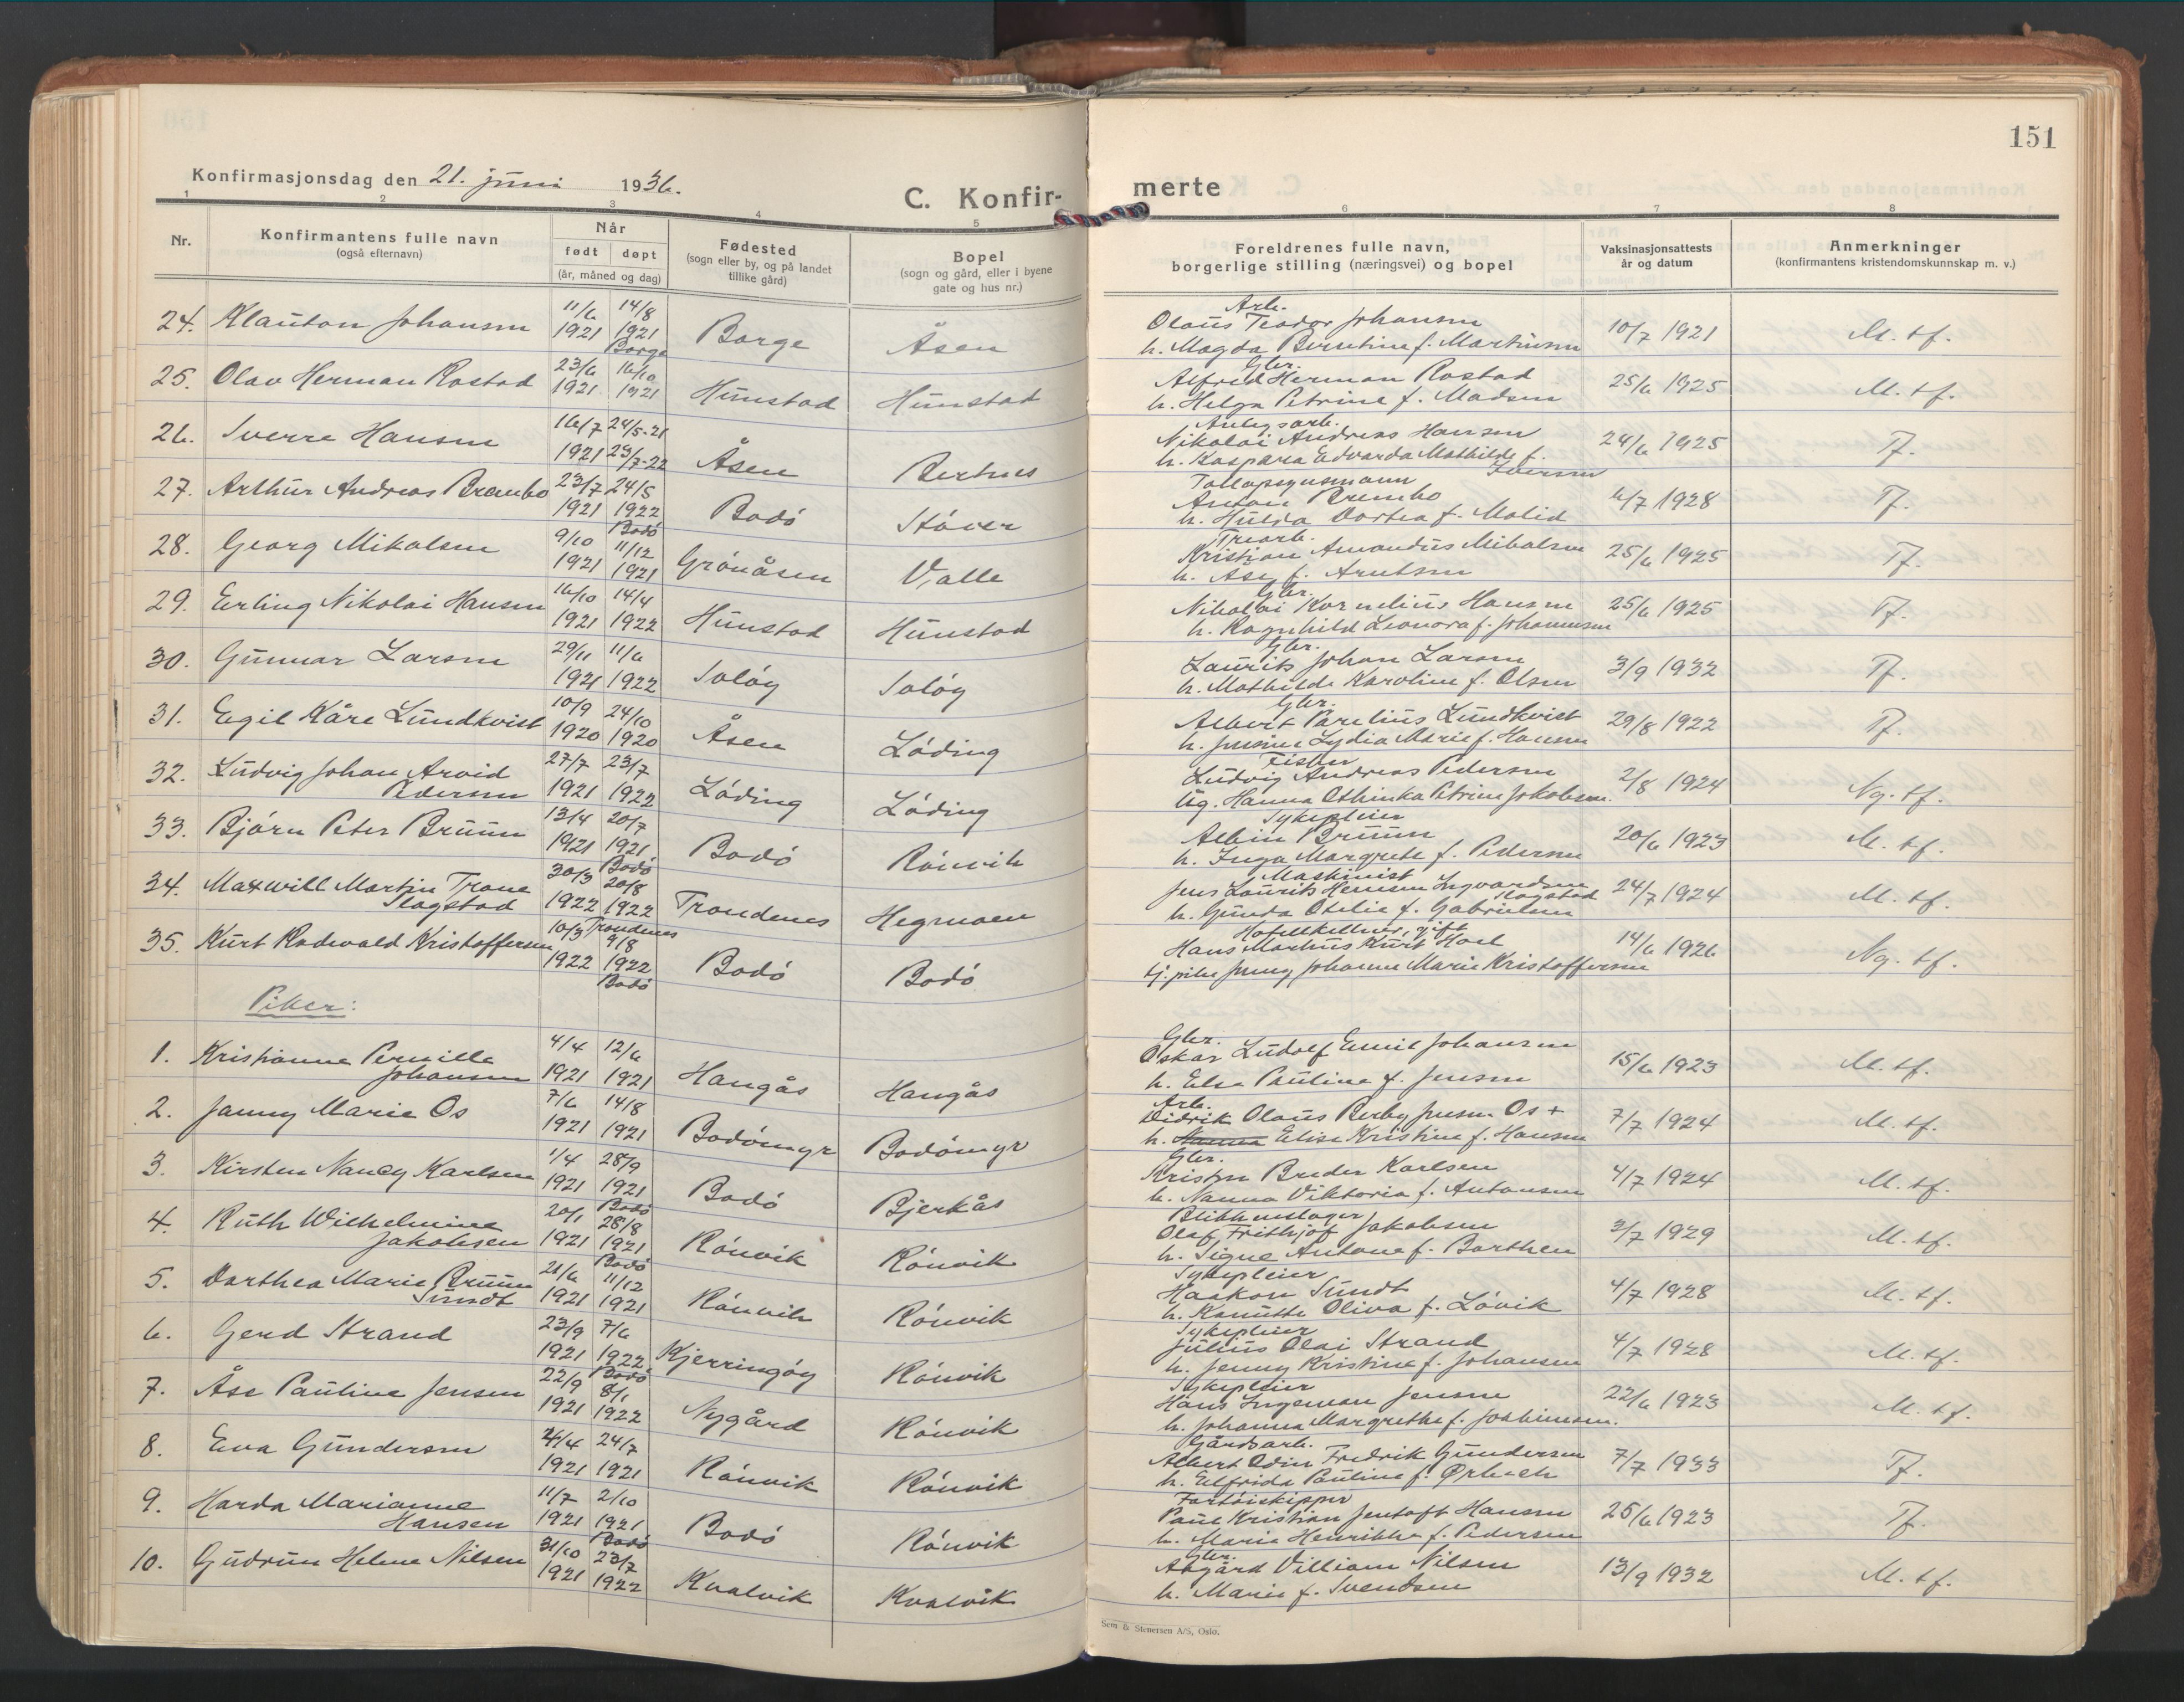 151
Konfirmasjonsdag den 21. juni 1936.
C. Konfir-
merte
1 2 3 4 5 6 7 8
Nr.
Konfirmantens fulle navn
(også efternavn)
Når
født døpt
(år, måned og dag)
Fødested
(sogn eller by, og på landet
tillike gård)
Bopel
(sogn og gård, eller i byene
gate og hus nr.)
Foreldrenes fulle navn,
borgerlige stilling (næringsvei) og bopel
Vaksinasjonsattests
år og datum
Anmerkninger
(konfirmantens kristendomskunnskap m. v.)
Arb.
24. Klauton Johansen 11/6 1921 14/8 1921 Borge Borge Åsen Olaus Teodor Johansen 10/7 1921 M. tf.
h. Magda Berntine f. Martinsen
Gbr.
25. Olav Herman Rostad 23/6 1921 16/10 1921 Hunstad Hunstad Alfred Herman Rostad 25/6 1925 M. tf.
h. Helga Petrine f. Madsen
26. Sverre Hansen 16/7 1921 24/5-21 23/7-22 Åsen Bertnes Nikolai Andreas Hansen 24/6 1925 Tf.
h. Kaspara Edvarda Mathilde f. Iversen
27. Arthur Andreas Brembo 23/7 1921 24/5 1922 Bodö Bodö Stöver Anton Brembo 4/7 1928 Tf.
h. Hulda Dortea f. Molid
28. Georg Mikalsen 9/10 1921 11/12 1921 Grönåsen Valle Kristian Amandus Mikalsen 25/6 1925 Tf.
h. Asy f. Arntsen
Gbr.
29. Erling Nikolai Hansen 16/10 1921 14/4 1922 Hunstad Hunstad Nikolai Kornelius Hansen 25/6 1925 Tf.
h. Ragnhild Leonora f. Johannesen
Gbr.
30. Gunnar Larsen 29/11 1921 11/6 1922 Solöy Solöy Laurits Johan Larsen 3/9 1932 Tf.
h. Mathilde Karoline f. Olsen
Gbr.
31. Egil Kåre Lundkvist 10/9 1920 24/10 1920 Åsen Löding Albert Parelius Lundkvist 29/8 1922 Tf.
h. Jensine Lydia Marie f. Hansen
Fisker
32. Ludvig Johan Arvid Pedersen 27/7 1921 23/7 1922 Löding Löding Ludvig Andreas Pedersen 2/8 1924 Ng. tf.
Ug. Hanna Othinka Petrine Jakobsen.
Sykepleier
33. Björn Peter Bruun 13/4 1921 20/7 1921 Bodö Bodö Rönvik Albin Bruun 20/6 1923 M. tf.
h. Inga Margrete f. Pedersen
Maskinist
34. Maxwill Martin Trane Slagstad 30/3 1922 20/8 1922 Trondenes Trondenes Hegmoen Jens Laurits Hemsen Ingvardsen Slagstad 24/7 1924 M. tf.
h. Gunda Otelie f. Gabrielsen
Hotellkellner, gift
35. Kurt Rodevald Kristoffersen 10/3 1922 9/8 1922 Bodö Bodö Bodö Hans Markus Kurt Hoel 14/6 1926 Ng. tf.
tj. pike Jenny Johanne Marie Kristoffersen
Piker:
Gbr.
1. Kristianne Pernille Johansen 4/4 1921 12/6 1921 Hangås Hangås Oskar Ludolf Emil Johansen 15/6 1923 M. tf.
h. Elsa Pauline f. Jensen
Arb.
2. Janny Marie Os 7/6 1921 14/8 1921 Bodömyr Bodömyr Didrik Olaus Berby Jensen Os + 7/7 1924 M. tf.
h. Elise Kristine f. Hansen
Gbr.
3. Kirsten Nancy Karlsen 1/4 1921 28/9 1921 Bodö Bodö Bjerkås Kristen Breder Karlsen 4/7 1924 M. tf.
h. Nanna Viktoria f. Antonsen
Blikkenslager
4. Ruth Wilhelmine Jakobsen 20/1 1921 28/8 1921 Bodö Rönvik Rönvik Olaf Frithjof Jakobsen 3/7 1929 M. tf.
h. Signe Antona f. Barthen
Sykepleier
5. Dorthea Marie Bruun Sundt 21/6 1921 11/12 1921 Rönvik Rönvik Haakon Sundt 4/7 1928 M. tf.
h. Kanutte Oliva f. Lövik
Sykepleier
6. Gerd Strand 23/9 1921 7/6 1922 Bodö Kjerringöy Rönvik Julius Olai Strand 4/7 1928 M. tf.
h. Jenny Kristine f. Johansen
Sykepleier
7. Åse Pauline Jensen 22/9 1921 8/1 1922 Nygård Rönvik Hans Ingeman Jensen 22/6 1923 M. tf.
h. Johanna Margrethe f. Joakimsen.
Gårdsarb.
8. Eva Gundersen 4/4 1921 24/7 1921 Rönvik Rönvik Albert Odin Fredrik Gundersen 7/7 1933 Tf.
h. Elfrida Pauline f. Ørbech
Fartöiskipper
9. Harda Marianne Hansen 11/7 1921 2/10 1921 Bodö Bodö Rönvik Paul Kristian Jentoft Hansen 25/6 1923 Tf.
h. Marie Henrikke f. Pedersen
Gbr.
10. Gudrun Helene Nilsen 31/10 1921 23/7 1922 Kvalvik Kvalvik Asgård Villiam Nilsen 13/9 1932 M. tf.
h. Marie f. Svendsen
Sem & Stenersen A/S, Oslo.